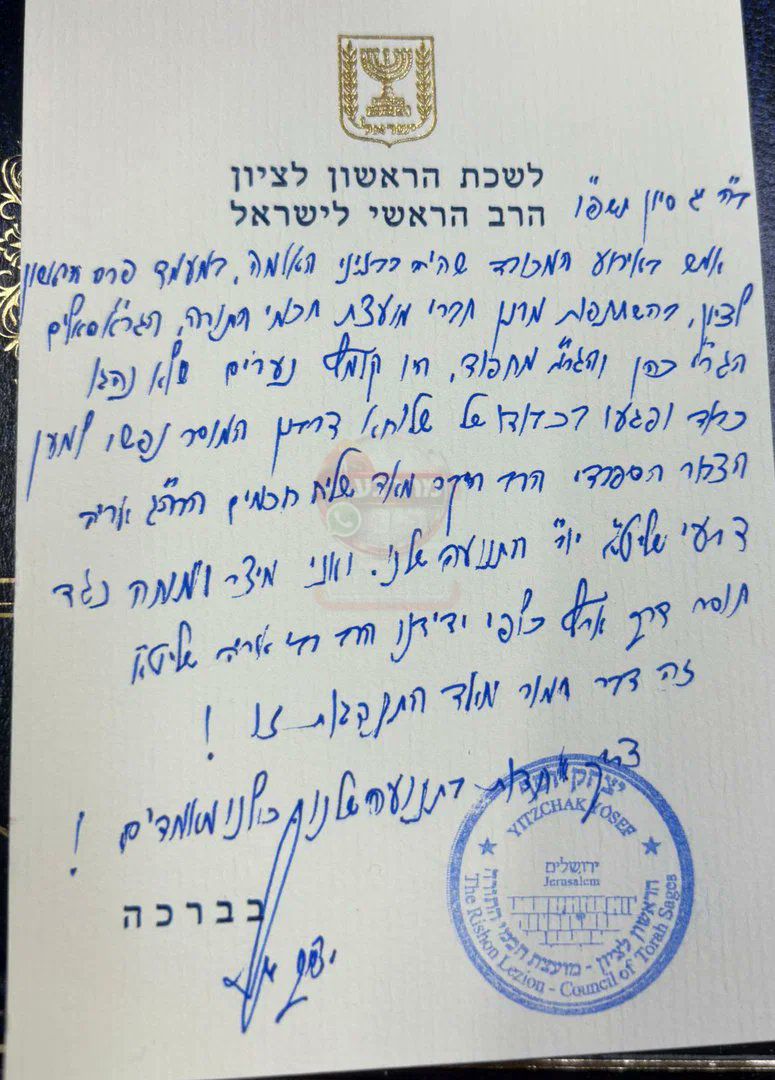 ישראל
לשכת הראשון לציון
הרב הראשי לישראל
בס"ד ג סיון תשפ"ו
אמש באירוע המכובד שהיה בבניני האומה, במעמד פרס הראשון
לציון, בהשתתפות מרנן חברי מועצת חכמי התורה,
הגר"ד כהן והגר"מ מחפוד, היו קומץ נערים שלא נהגו
כבוד ופגעו בכבודו של שלוחא דרבנן המוסר נפשו למען
הציבור הספרדי הרב היקר מאד שליח חכמים הרה"ג אריה
דרעי שליט"א יו"ר התנועה שלנו. ואני מיצר ומוחה נגד
חוסר דרך ארץ כלפי ידידנו הרב רבי אריה שליט"א
זה דבר חמור מאד התנהגות זו !
צריך אחדות בתנועה שלנו כולנו מאוחדים !
בברכה
יצחק יוסף
יצחק יוסף
YITZCHAK YOSEF
ירושלים
Jerusalem
הראשון לציון - מועצת חכמי התורה
The Rishon Lezion - Council of Torah Sages